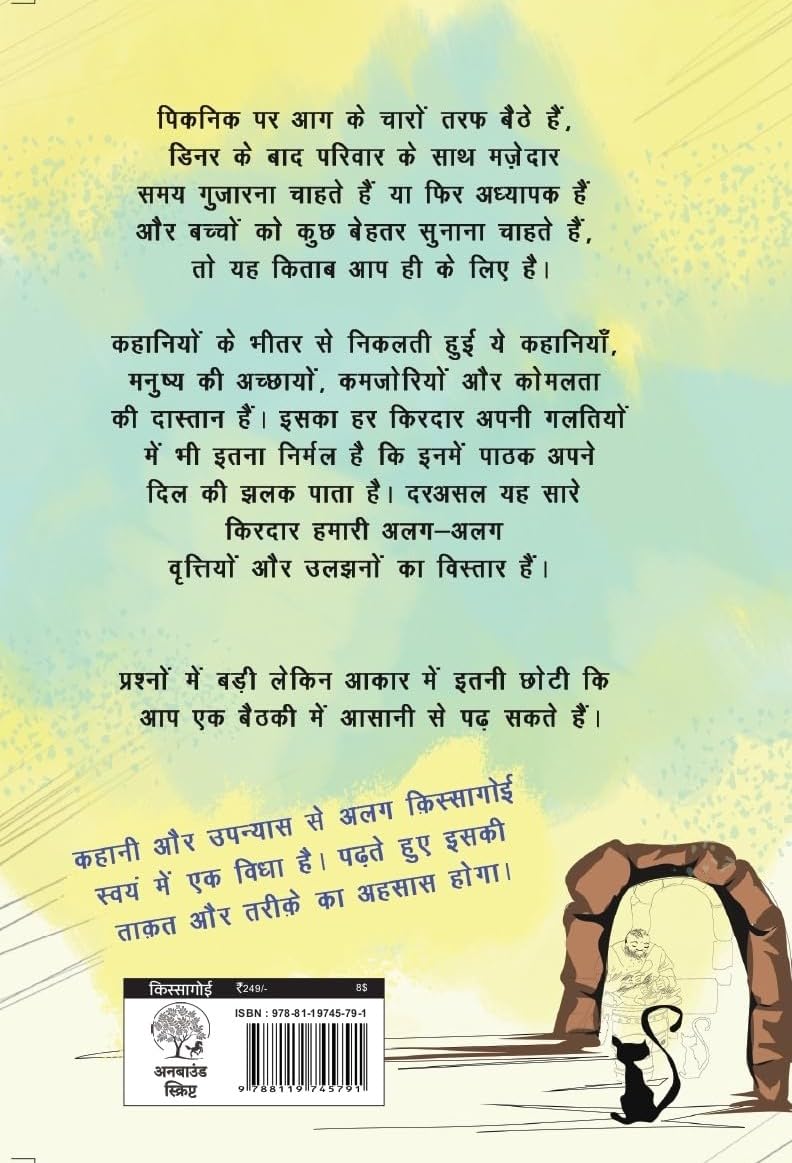 पिकनिक पर आग के चारों तरफ बैठे हैं,
डिनर के बाद परिवार के साथ मज़ेदार
समय गुजारना चाहते हैं या फिर अध्यापक हैं
और बच्चों को कुछ बेहतर सुनाना चाहते हैं,
तो यह किताब आप ही के लिए है।
कहानियों के भीतर से निकलती हुई ये कहानियाँ,
मनुष्य की अच्छायों, कमजोरियों और कोमलता
की दास्तान हैं। इसका हर किरदार अपनी गलतियों
में भी इतना निर्मल है कि इनमें पाठक अपने
दिल की झलक पाता है। दरअसल यह सारे
किरदार हमारी अलग–अलग
वृत्तियों और उलझनों का विस्तार हैं।
प्रश्नों में बड़ी लेकिन आकार में इतनी छोटी कि
आप एक बैठकी में आसानी से पढ़ सकते हैं।
कहानी और उपन्यास से अलग क़िस्सागोई
स्वयं में एक विधा है। पढ़ते हुए इसकी
ताक़त और तरीक़े का अहसास होगा।
किस्सागोई ₹249/- 8$
ISBN : 978-81-19745-79-1
अनबाउंड
स्क्रिप्ट
9 788119 745791